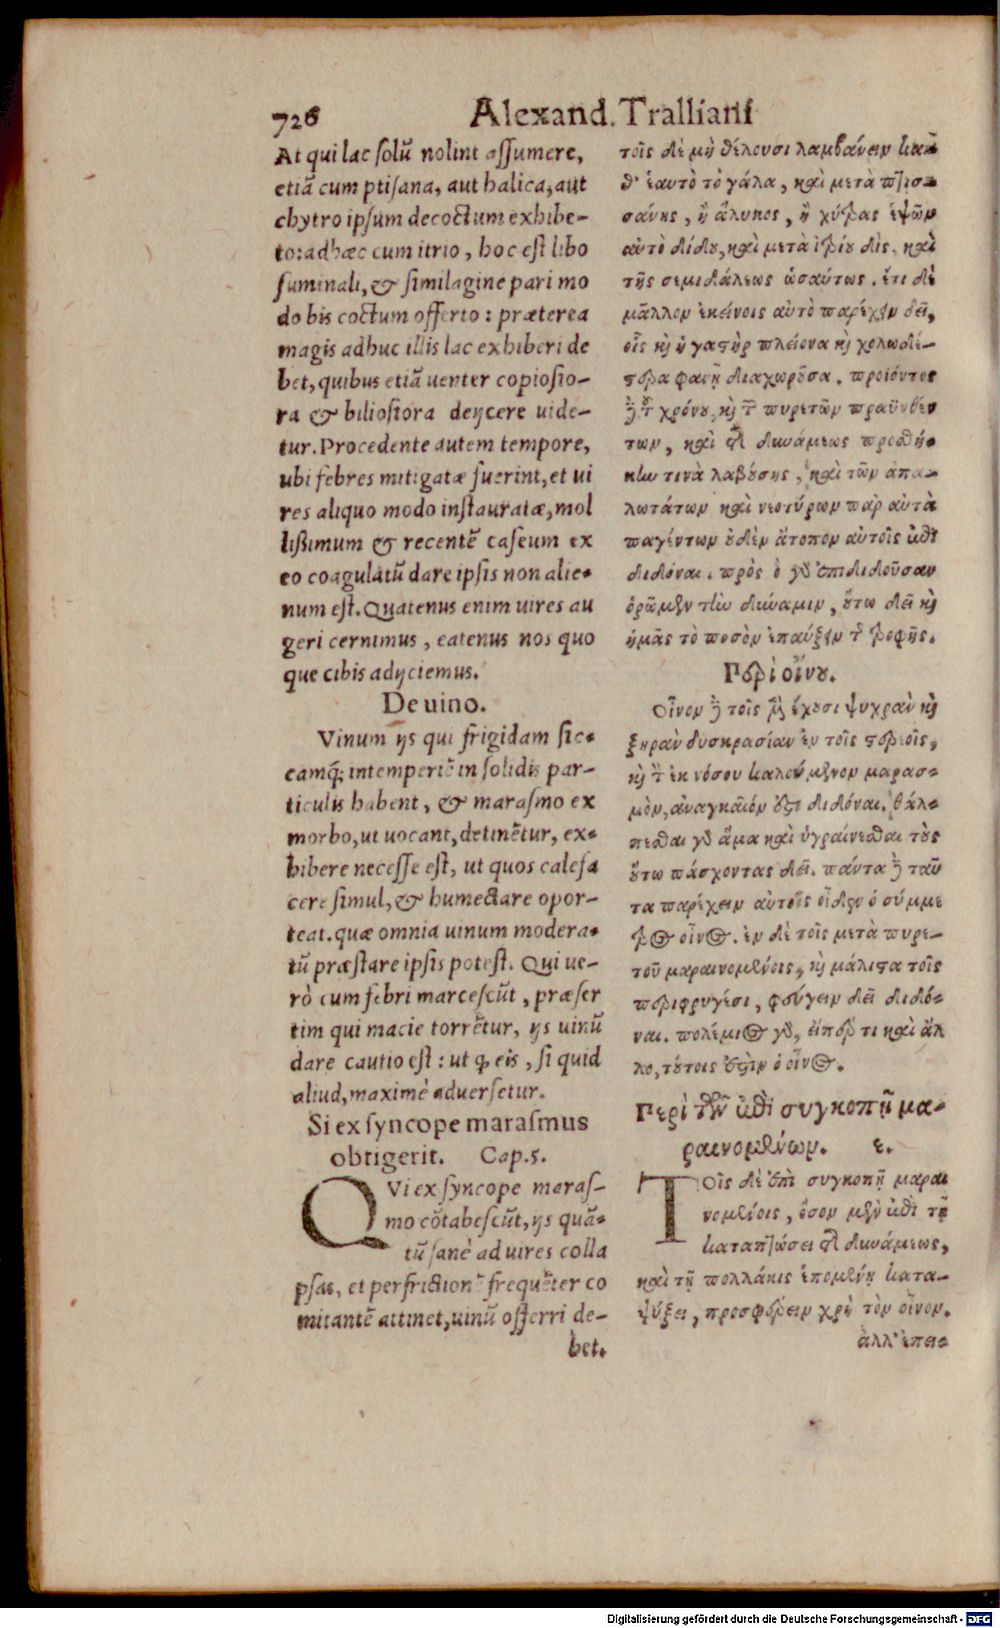 726 Alexand. Tralliani
At qui lac solũ nolint assumere,
etiã cum ptisana, aut halica, aut
chytro ipsum decoctum exhibe-
to: ad hæc cum itrio, hoc est libo
suminali, & similagine pari mo
do bis coctum offerto: præterea
magis adhuc illis lac exhiberi de
bet, quibus etiã uenter copiosio-
ra & biliosiora deijcere uide-
tur. Procedente autem tempore,
ubi febres mitigatæ fuerint, et ui
res aliquo modo instauratæ, mol
lißimum & recentẽ caseum ex
eo coagulatũ dare ipsis non alie-
num est. Quatenus enim uires au
geri cernimus, eatenus nos quo
que cibis adijciemus.
De uino.
Vinum ijs qui frigidam sic-
camq́; intemperiẽ in solidis par-
ticulis habent, & marasmo ex
morbo, ut uocant, detinẽtur, ex-
hibere necesse est, ut quos calefa
cere simul, & humectare opor-
teat. quæ omnia uinum modera-
tũ præstare ipsis potest. Qui ue-
rò cum febri marcescũt, præser
tim qui macie torrẽtur, ijs uinũ
dare cautio est: ut ꝙ eis, si quid
aliud, maximè aduersetur.
Si ex syncope marasmus
obtigerit. Cap. 5.
QVi ex syncope maras-
mo cõtabescũt, ijs quã-
tũ sanè ad uires colla
psas, et perfrictionẽ frequẽter co
mitantẽ attinet, uinũ offerri de-
bet.
τοῖς δὲ μὴ θέλουσι λαμβάνειν κα-
θ' ἑαυτὸ τὸ γάλα, καὶ μετὰ πτισ-
σάνης, ἢ ἄλυκος, ἢ χύτρας ἑψῶν
αὐτὸ δίδου, καὶ μετὰ ἰτρίου δὶς. καὶ
τῆς σεμιδάλεως ὡσαύτως. ἔτι δὲ
μᾶλλον ἐκείνοις αὐτὸ παρέχειν δεῖ,
οἷς καὶ ἡ γαστὴρ πλείονα καὶ χολωδέ-
στερα φανῇ διαχωροῦσα. προϊόντος
δὲ τοῦ χρόνου, καὶ τῶν πυρετῶν πραϋνθέν
των, καὶ τῆς δυνάμεως προσθή-
κην τινὰ λαβούσης, καὶ τῶν ἁπα-
λωτάτων καὶ νεοτύρων παρ αὐτὰ
παγέντων οὐδὲν ἄτοπον αὐτοῖς ἐπι
διδόναι. πρὸς ὃ γὰρ ἐπιδιδοῦσαν
ὁρῶμεν τὴν δύναμιν, οὕτω δεῖ καὶ
ἡμᾶς τὸ ποσὸν ἐπαύξειν τῆς τροφῆς.
Περὶ οἴνου.
Οἶνον δὲ τοῖς μὲν ἔχουσι ψυχρὰν καὶ
ξηρὰν δυσκρασίαν ἐν τοῖς στερεοῖς,
καὶ τὸν ἐκ νόσου καλούμενον μαρασ-
μὸν, ἀναγκαῖόν ἐστι διδόναι. θάλ-
πεσθαι γὰρ ἅμα καὶ ὑγραίνεσθαι τοὺς
οὕτω πάσχοντας δεῖ. πάντα δὲ ταῦ
τα παρέχειν αὐτοῖς οἶδεν ὁ σύμμε
τρος οἶνος. ἐν δὲ τοῖς μετὰ πυρε-
τοῦ μαραινομένοις, καὶ μάλιστα τοῖς
περιφρυγέσι, φεύγειν δεῖ διδό-
ναι. πολέμιος γὰρ, εἴπερ τι καὶ ἄλ
λο, τούτοις ἐστὶν ὁ οἶνος.
Περὶ τῶν ἐπὶ συγκοπῇ μα-
ραινομένων. ε.
Τοῖς δὲ ἐπὶ συγκοπῇ μαραι
νομένοις, ὅσον μὲν ἐπὶ τῇ
καταπτώσει τῆς δυνάμεως,
καὶ τῇ πολλάκις ἑπομένῃ κατα-
ψύξει, προσφέρειν χρὴ τὸν οἶνον.
ἀλλ' ἐπει-
Digitalisierung gefördert durch die Deutsche Forschungsgemeinschaft - DFG